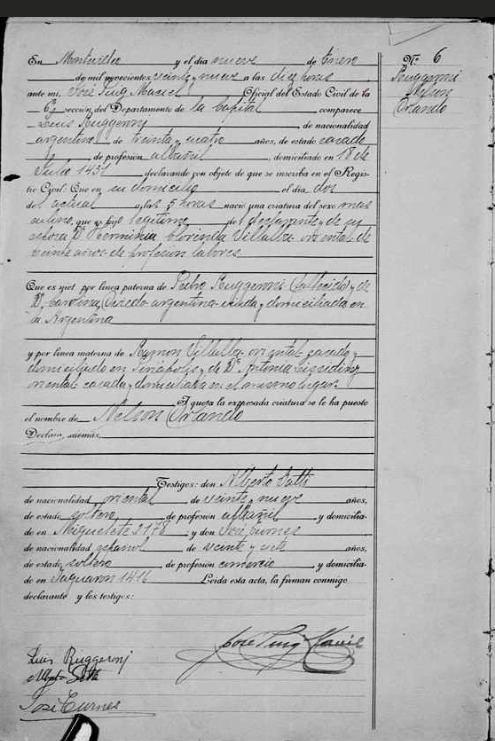 En Montevideo y el día nueve de Enero
de mil novecientos veinte y nueve a las diez horas
ante mi, José Puig Maciel Oficial del Estado Civil de la
6ª sección del Departamento de la Capital comparece
Luis Ruggeroni de nacionalidad
argentino de treinta y cuatro años, de estado casado
y de profesión albañil, domiciliado en 18 de
Julio 1431 declarando con objeto de que se inscriba en el Regis-
tro Civil: Que en su domicilio el día dos
del actual a las 5 horas nació una criatura del sexo mas
culino, que es hijo legítimo del declarante y de su
esposa Dª Herminia Clorinda Villalba oriental de
veinte años de profesión labores
Que es niet por línea paterna de Pedro Ruggeroni (fallecido) y de
Dª Carolina Oviedo argentina viuda y domiciliada en
la Argentina
y por línea materna de Ramon Villalba oriental casado y
domiciliado en Piriápolis y de Dª Antonia
oriental casada y domiciliada en el mismo lugar
A quota la expresada criatura se le ha puesto
el nombre de Nelson Orlando
Declara, además,
Testigos: don Alberto
de nacionalidad oriental de veinte y nueve años,
de estado soltero de profesión albañil y domicilia-
do en Miguelete 2178 y don José Curnes
de nacionalidad español de veinte y años,
de estado soltero de profesión comercio y domicilia-
do en Yaguaron 1416 Leída esta acta, la firman conmigo
declarante y los testigos:
José Puig Maciel
Luis Ruggeroni
José Curnes
Nº 6
Ruggeroni
Nelson
Orlando